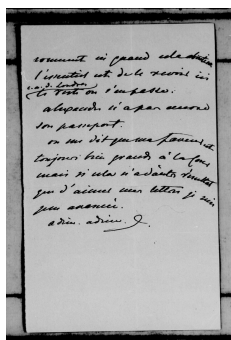 comment ni quand cela
l'essentiel est de le revoir ici
le reste on s'en passe.
alexandre n'a pas encore
son passeport.
on me dit que ma faveur est
toujours très grande à la Cour
mais si cela n'a d'autre résultat
que d'aimer mes lettres je suis
peu avancée.
adieu. adieu.